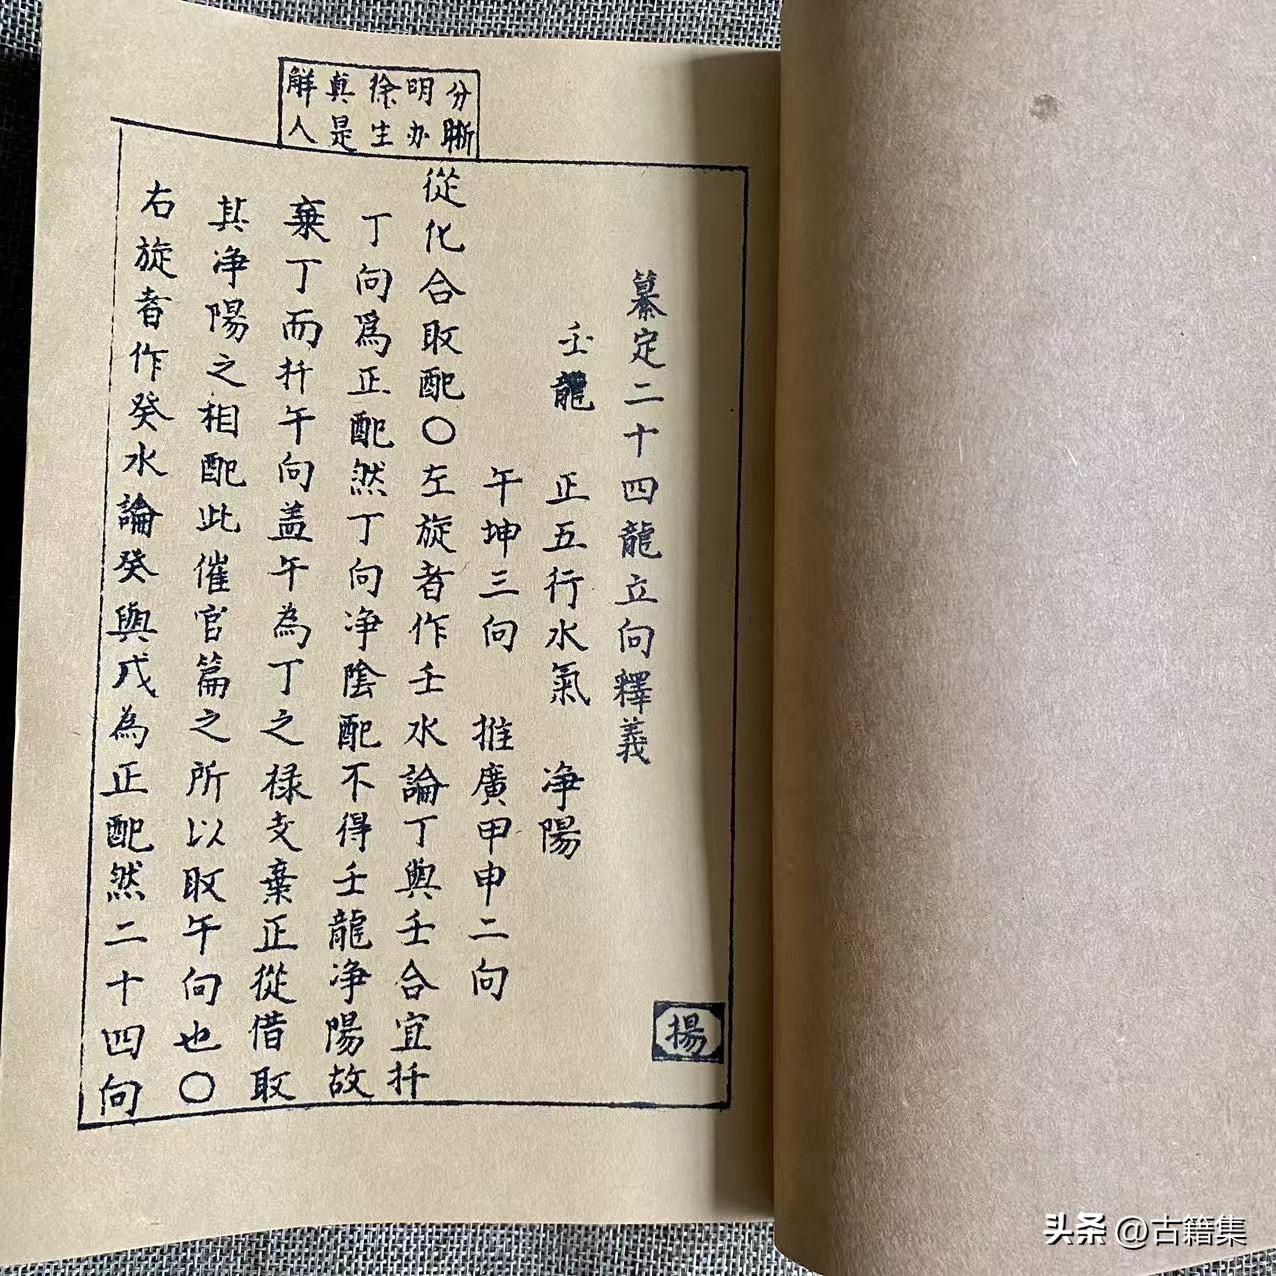 分晰
明办
徐生
真是
解人
纂定二十四龍立向釋義
揚
壬龍 正五行水氣 净陽
午坤三向 推廣甲申二向
從化合取配〇左旋者作壬水論丁與壬合宜扦
丁向爲正配然丁向净陰配不得壬龍净陽故
棄丁而扦午向盖午為丁之禄支棄正從借取
其净陽之相配此催官篇之所以取午向也〇
右旋者作癸水論癸與戊為正配然二十四向
头条 @古籍集